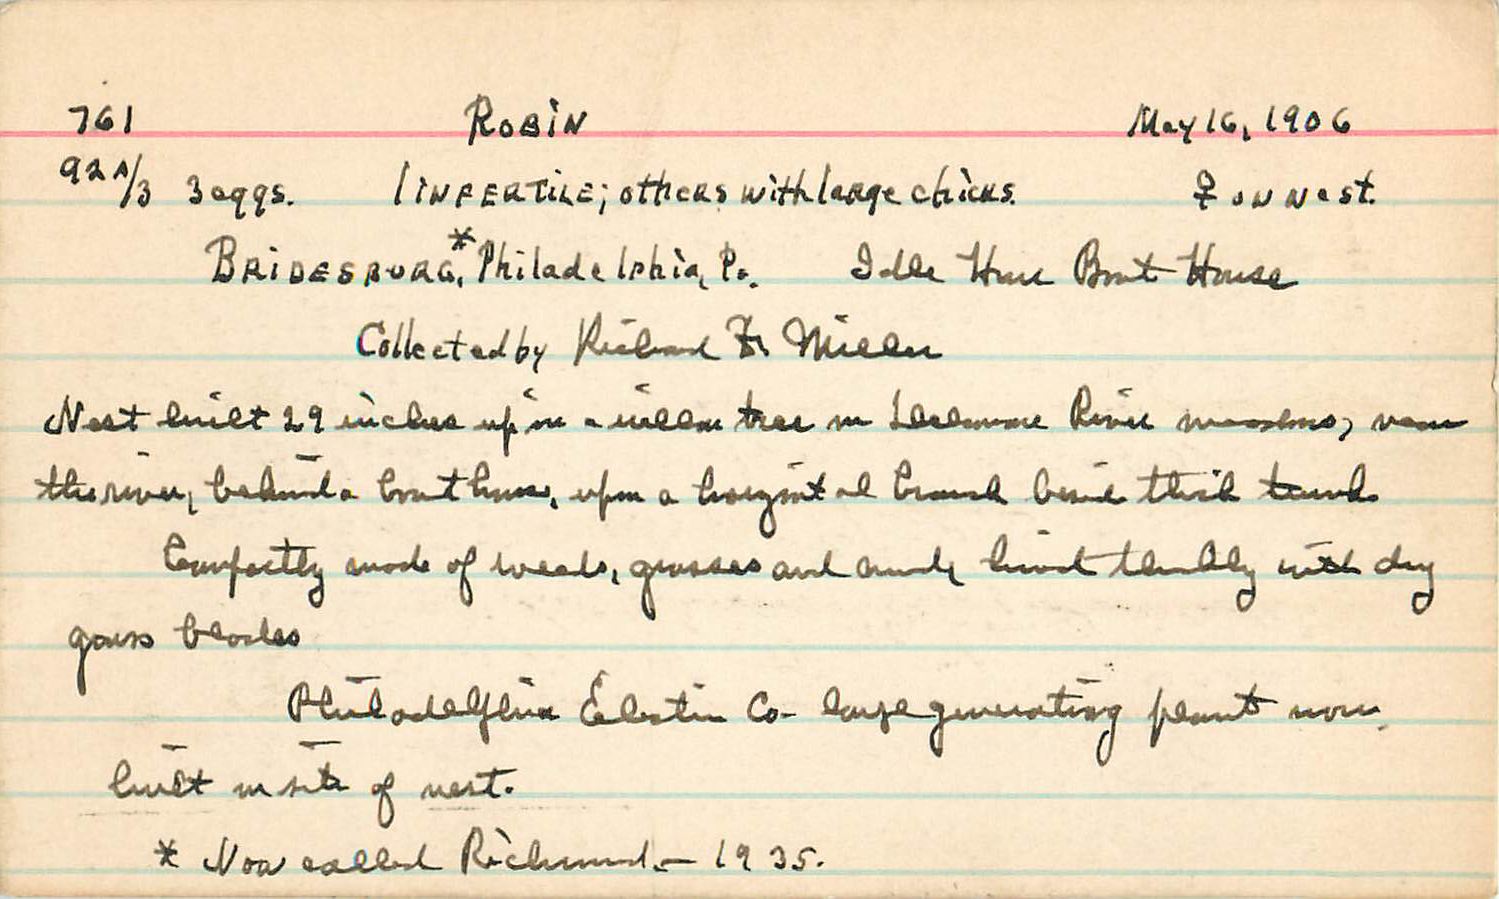 761 Robin May 16, 1906
92 A/3 3 eggs. 1 infertile; others with large chicks. ♀ on nest.
Bridesburg,* Philadelphia, Pa. Idle Hour Boat House
Collected by Richard F. Miller
Nest built 29 inches up in a willow tree in Delaware River meadows, near
the river, behind a boat house, upon a horizontal branch beside thick trunk
Compactly made of weeds, grasses and mud, lined thickly with dry
grass blades
Philadelphia Electric Co- large generating plant now
built on site of nest.
* Now called Richmond - 1935.